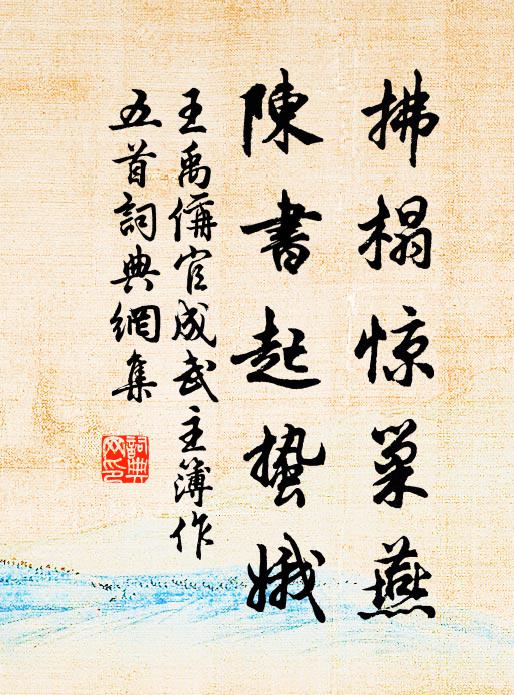 拂榻惊巢燕
陳書起蟄娥
王禹偁官成武主簿作
五首詞典網集
詞典
网印